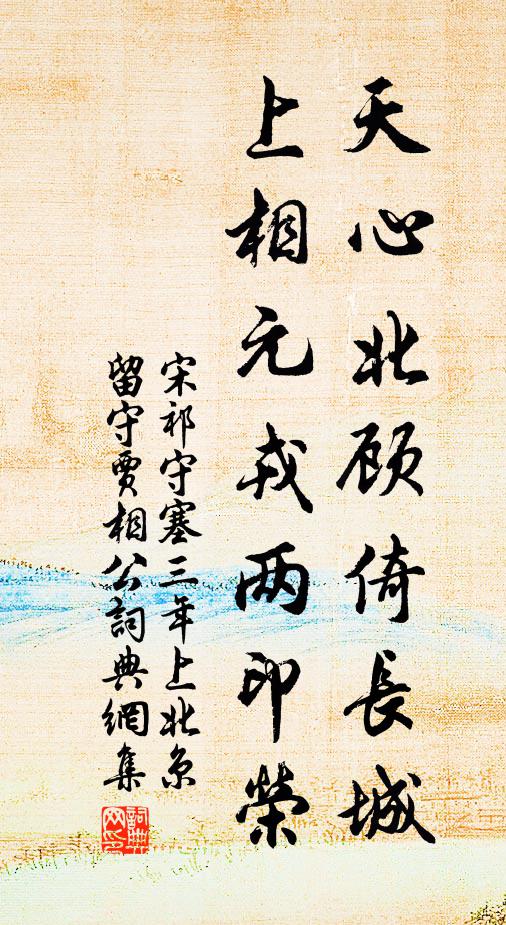 天心北顾倚長城
上相元戎两印榮
宋祁守塞三年上北京
留守賈相公詞典網集
詞典网印